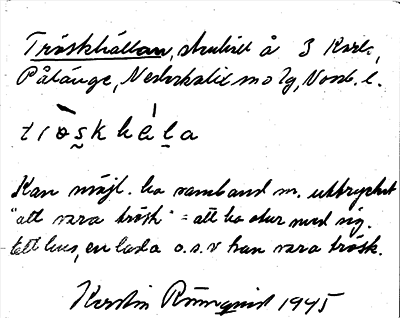 Tröskhällan, skulit å 3 Karl,
Påtånge, Nederkalix sn o lg, Norrb. l.
trö̀skhéla
Kan möjl. ha samband m. uttrycket
"att vara trösk" = att ha otur med sig.
Ett hus, en lada o.s.v kan vara trösk.
Kerstin Rönnqvist 1945